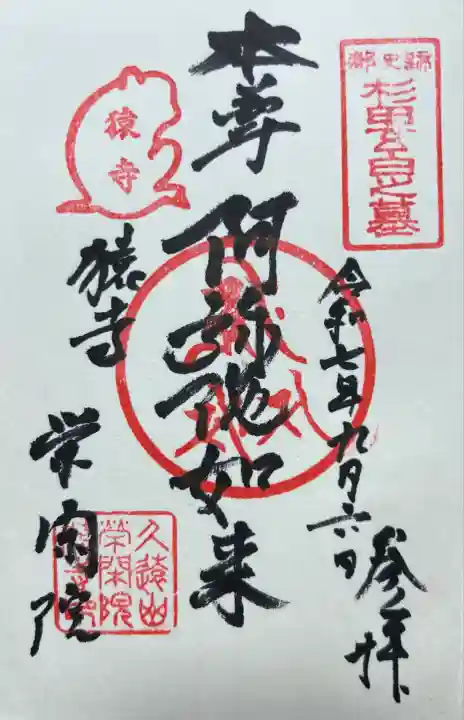 御史跡
杉田玄白之墓
令和七年九月六日
参拝
本尊
阿弥陀如来
猿寺
猿寺
栄閑院
久遠山
榮閑院